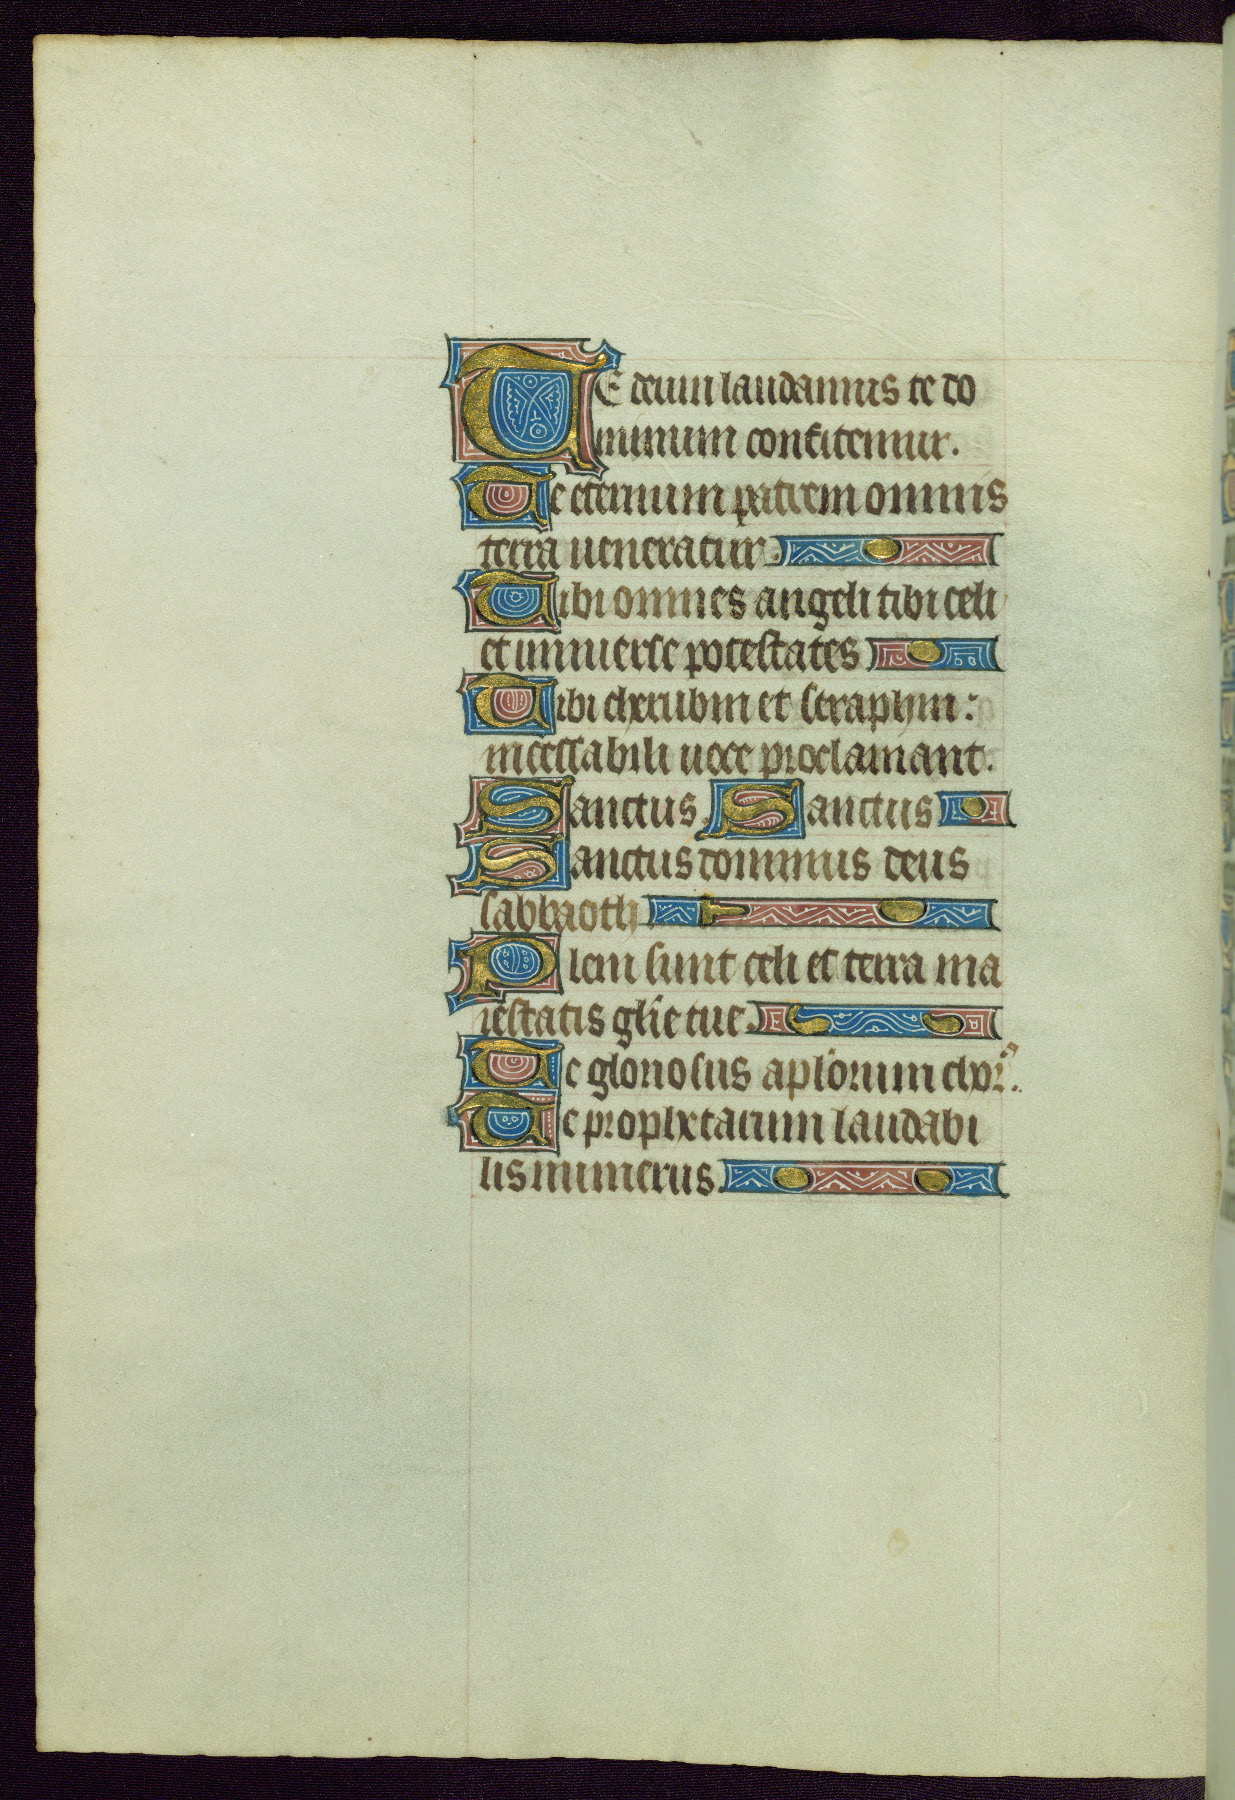 TE deum laudamus te do
minum confitemur.
Te eternum patrem omnis
terra ueneratur.
Tibi omnes angeli tibi celi
et uniuerse potestates
Tibi cherubin et seraphin:
incessabili uoce proclamant.
Sanctus. Sanctus
Sanctus dominus deus
sabbaoth
Pleni sunt celi et terra ma
iestatis gl̄ie tue.
Te gloriosus apl̄orum chor᷒.
Te prophetarum laudabi
lis numerus.